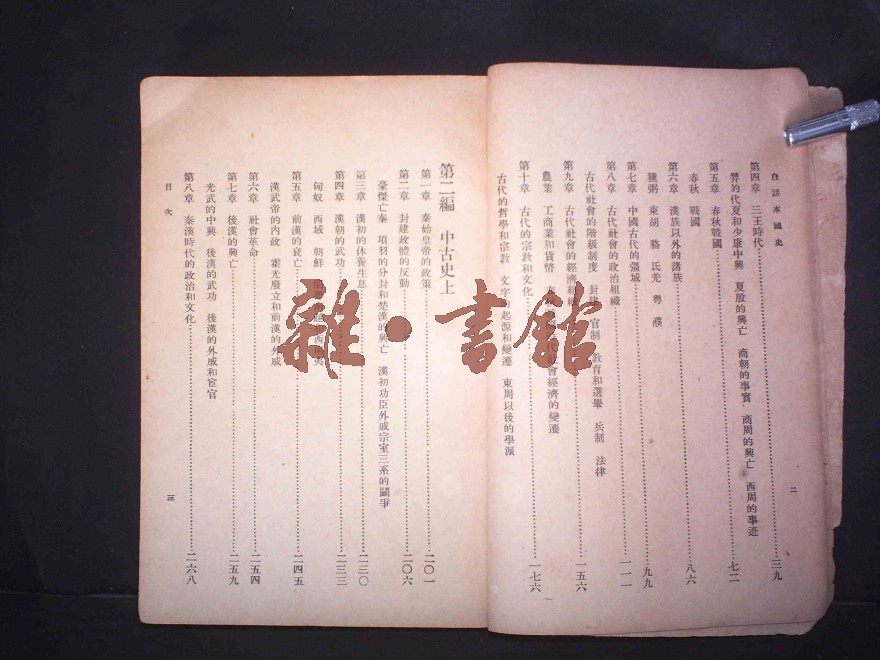 白話本國史
第四章 三王時代 三九
羿的代夏和少康中興 夏殷的興亡 商朝的事實 商周的興亡 西周的事迹
第五章 春秋戰國 七二
春秋 戰國
第六章 漢族以外的諸族 八六
獯粥 東胡 貉 氐羌 粵 濮
第七章 中國古代的疆域 九九
第八章 古代社會的政治組織 一一一
古代社會的階級制度 封建 官制 教育和選舉 兵制 法律
第九章 古代社會的經濟組織 一五六
農業 工商業和貨幣 會經濟的變遷
第十章 古代的宗教和文化 一七六
古代的哲學和宗教 文字的起源和變遷 東周以後的學派
二
第二編 中古史上
第一章 秦始皇帝的政策 二〇一
第二章 封建政體的反動 二〇六
豪傑亡秦 項羽的分封和楚漢的興亡 漢初功臣外戚宗室三系的鬭爭
第三章 漢初的休養生息 二三〇
第四章 漢朝的武功 二三三
匈奴 西域 朝鮮
第五章 前漢的衰亡 二四五
漢武帝的內政 霍光廢立和前漢的外戚
第六章 社會革命 二五四
第七章 後漢的興亡 二五九
光武的中興 後漢的武功 後漢的外戚和宦官
第八章 秦漢時代的政治和文化 二六八
目次
三
雜·書館